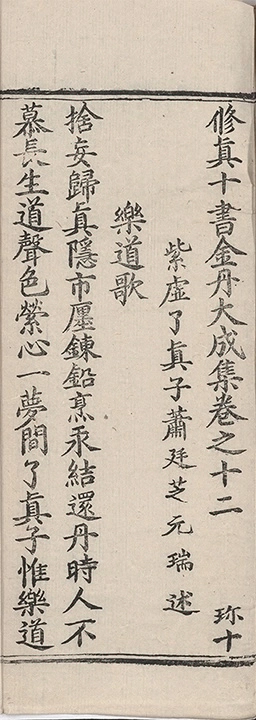 修眞十書金丹大成集卷之十二 珎十
紫虛了眞子蕭廷芝元瑞述
樂道歌
捨妄歸眞隱市廛鍊鉛烹汞結還丹時人不
慕長生道聲色縈心一夢間了眞子惟樂道